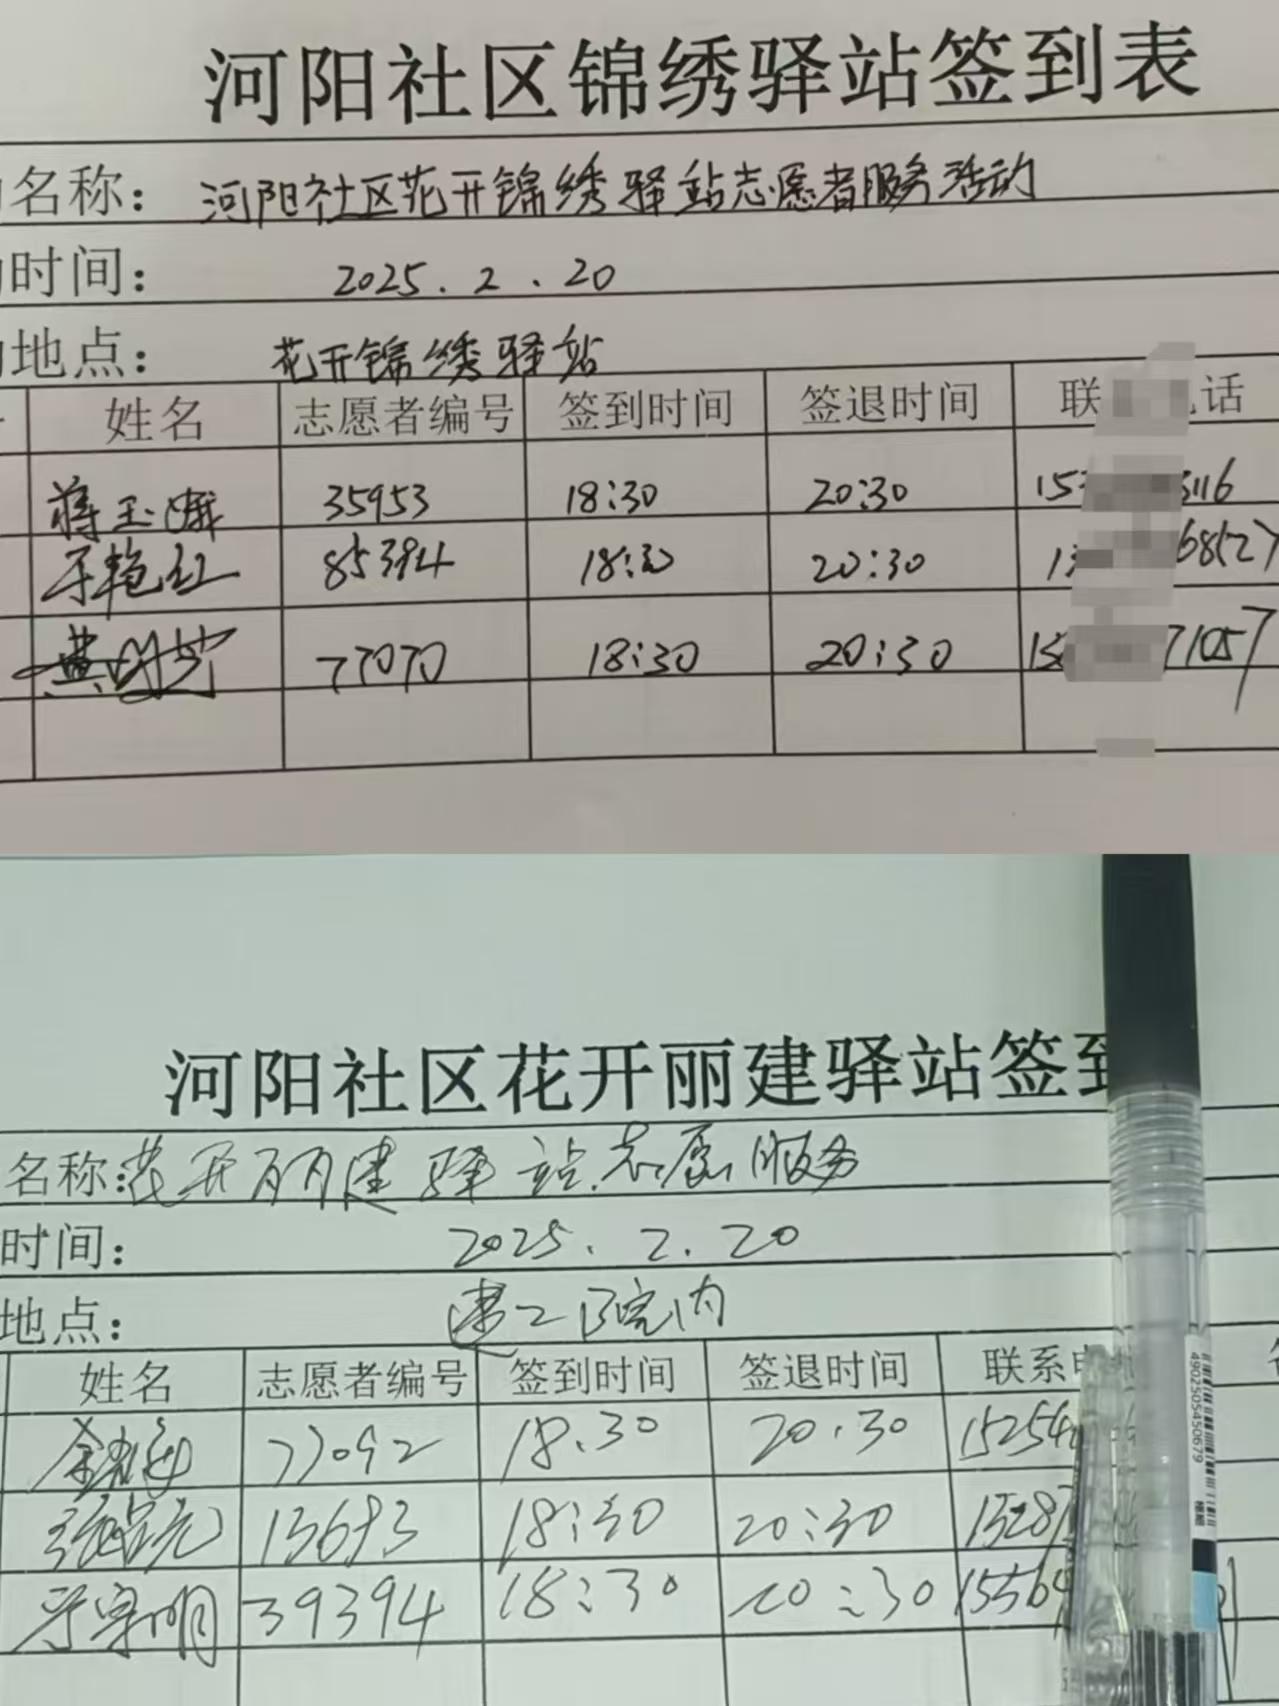 河阳社区锦绣驿站签到表
名称：河阳社区花开锦绣驿站志愿者服务活动
时间：2025.2.20
地点：花开锦绣驿站
姓名 志愿者编号 签到时间 签退时间 联 话
蒋玉娥 35953 18:30 20:30 153 3116
于艳红 85394 18:30 20:30 13 68527
黄 77070 18:30 20:30 15 71057
河阳社区花开丽建驿站签到
名称：花开丽建驿站志愿服务
时间：2025.2.20
地点：建工院内
姓名 志愿者编号 签到时间 签退时间 联系电
77092 18.30 20.30 15254
张 13693 18:30 20:30 15287
39394 18:30 20:30 15564
4902505450679